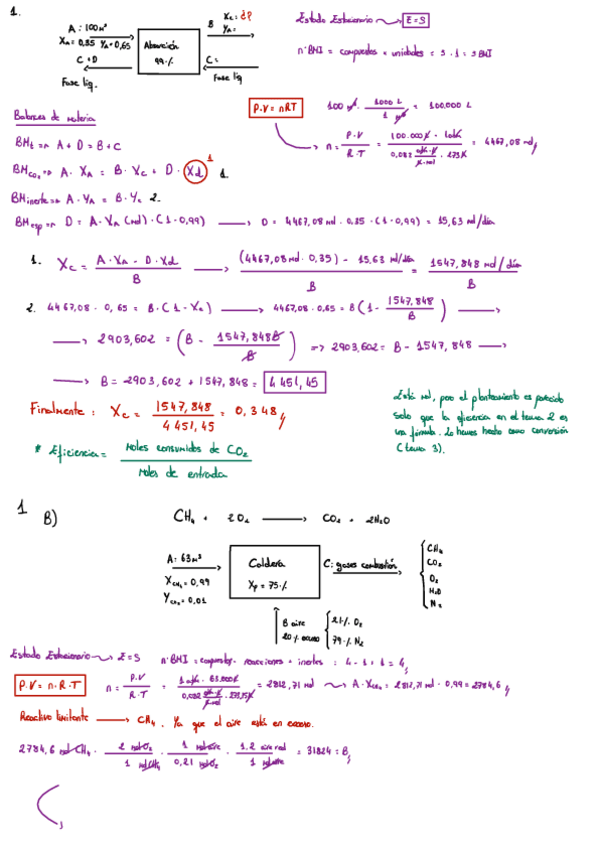 1.
A: 100 m³
X_A = 0,35 Y_A = 0,65
C + D
Fase líq.
Absorción
99 %
B
X_c = ¿?
Y_A =
C =
Fase líq
Estado Estacionario → E = S
n° BMI = compuestos * unidades = 3 · 1 = 3 BMI
P.V = nRT
100 m³ · 1000 L / 1 m³ = 100.000 L
→ n = P.V / R.T = 100.000 L · 1 atm / 0,082 atm·L/K·mol · 273 K = 4467,08 mol
Balances de materia
BM_t ⇒ A + D = B + C
BM_CO₂ ⇒ A · X_A = B · X_c + D · X_d 1 1.
BM inerte ⇒ A · Y_A = B · Y_c 2.
BM esp ⇒ D = A · X_A (mol) · (1 - 0,99) → D = 4467,08 mol · 0,35 · (1 - 0,99) = 15,63 mol/día
1. X_c = A · X_A - D · X_d / B → (4467,08 mol · 0,35) - 15,63 mol/día / B = 1547,848 mol/día / B
2. 4467,08 · 0,65 = B · (1 - X_c) → 4467,08 · 0,65 = B (1 - 1547,848 / B) →
→ 2903,602 = (B - 1547,848 B / B) ⇒ 2903,602 = B - 1547,848 →
→ B = 2903,602 + 1547,848 = 4451,45
Finalmente: X_c = 1547,848 / 4451,45 = 0,348
* Eficiencia = Moles consumidos de CO₂ / Moles de entrada
Está mal, pero el planteamiento es parecido
solo que la eficiencia en el tema 2 es
una fórmula. Lo haces hecho como conversión
(tema 3).
1 B)
CH₄ + 2O₂ → CO₂ + 2H₂O
A: 63 m³
X_CH₄ = 0,99
Y_CO₂ = 0,01
Caldera
X_p = 75 %
C: gases combustión
CH₄
CO₂
O₂
H₂O
N₂
B aire
20 % exceso
21 % O₂
79 % N₂
Estado Estacionario → E = S n° BMI = compuestos - reacciones + inertes = 4 - 1 + 1 = 4
P.V = n.R.T n = P.V / R.T = 1 atm · 63.000 L / 0,082 atm·L/K·mol · 273,15 K = 2812,71 mol → A · X_CH₄ = 2812,71 mol · 0,99 = 2784,6
Reactivo limitante → CH₄. Ya que el aire está en exceso.
2784,6 mol CH₄ · 2 mol O₂ / 1 mol CH₄ · 1 mol aire / 0,21 mol O₂ · 1,2 aire real / 1 mol aire = 31824 = B